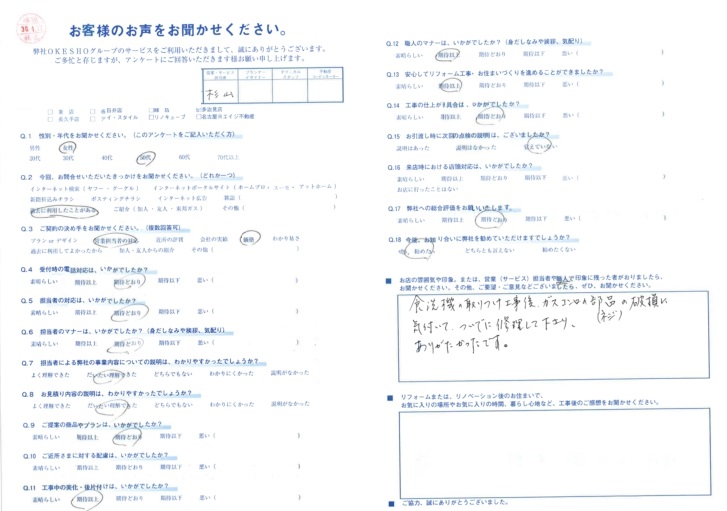 お客様のお声をお聞かせください。
弊社OKESHOグループのサービスをご利用いただきまして、誠にありがとうございます。
ご多忙と存じますが、アンケートにご回答いただきます様お願い申し上げます。
営業・サービス担当者 プランナーデザイナー テクニカルスタッフ 不動産コーディネーター
杉山
□本店 □春日井店 □岡崎 ☑多治見店
□名古屋エイジ不動産
Q.1 性別・年代をお聞かせください。（このアンケートをご記入いただく方）
男性 女性
20代 30代 40代 50代 60代 70代以上
Q.2 今回、お問合せいただいたきっかけをお聞かせください。（どれか一つ）
インターネット検索（ヤフー・グーグル） インターネットポータルサイト（ホームプロ・ヒーセ・アットホーム）
新聞折込みチラシ ポスティングチラシ インターネット広告 雑誌（
過去に利用したことがある ご紹介（知人・友人・東邦ガス） その他（ ）
Q.3 ご契約の決め手をお聞かせください。（複数回答可）
プラン or デザイン 営業担当者の対応 近所の評判 会社の実績 価格 わかり易さ
過去に利用してよかったから 知人・友人からの紹介 その他（ ）
Q.4 受付時の電話対応は、いかがでしたか？
素晴らしい 期待以上 期待どおり 期待以下 悪い（ ）
Q.5 担当者の対応は、いかがでしたか？
素晴らしい 期待以上 期待どおり 期待以下 悪い（ ）
Q.6 担当者のマナーは、いかがでしたか？（身だしなみや挨拶、気配り）
素晴らしい 期待以上 期待どおり 期待以下 悪い（ ）
Q.7 担当者による弊社の事業内容についての説明は、わかりやすかったでしょうか？
よく理解できた だいたい理解できた どちらでもない わかりにくかった 説明がなかった
Q.8 お見積り内容の説明は、わかりやすかったでしょうか？
よく理解できた だいたい理解できた どちらでもない わかりにくかった 説明がなかった
Q.9 ご提案の商品やプランは、いかがでしたか？
素晴らしい 期待以上 期待どおり 期待以下 悪い（ ）
Q.10 ご近所さまに対する配慮は、いかがでしたか？
素晴らしい 期待以上 期待どおり 期待以下 悪い（ ）
Q.11 工事中の美化・後片付けは、いかがでしたか？
素晴らしい 期待以上 期待どおり 期待以下 悪い（ ）
Q.12 職人のマナーは、いかがでしたか？（身だしなみや挨拶、気配り）
素晴らしい 期待以上 期待どおり 期待以下 悪い（ ）
Q.13 安心してリフォーム工事・お住まいづくりを進めることができましたか？
素晴らしい 期待以上 期待どおり 期待以下 悪い（ ）
Q.14 工事の仕上がり具合は、いかがでしたか？
素晴らしい 期待以上 期待どおり 期待以下 悪い（ ）
Q.15 お引渡し時に次回の点検の説明は、ございましたか？
説明はあった 説明はなかった 覚えていない
Q.16 来店時における店頭対応は、いかがでしたか？
素晴らしい 期待以上 期待どおり 期待以下 悪い（ ）
お店に行ったことはない
Q.17 弊社への総合評価をお願いいたします。
素晴らしい 期待以上 期待どおり 期待以下 悪い（ ）
Q.18 今後、お知り合いに弊社を勧めていただけますでしょうか？
勧めたい どちらとも言えない 勧めたくない
■ お店の雰囲気や印象、または、営業（サービス）担当者や職人で印象に残った者がおりましたら、
お聞かせください。その他、ご要望・ご意見などございましたら、ぜひ、お聞かせください。
食洗機の取りつけ工事後、ガスコンロの部品の破損に
（ネジ）
気付いて、ついでに修理して下さり、
ありがたかったです。
■ リフォームまたは、リノベーション後のお住まいで、
お気に入りの場所やお気に入りの時間、暮らし心地など、工事後のご感想をお聞かせください。
■ ご協力、誠にありがとうございました。